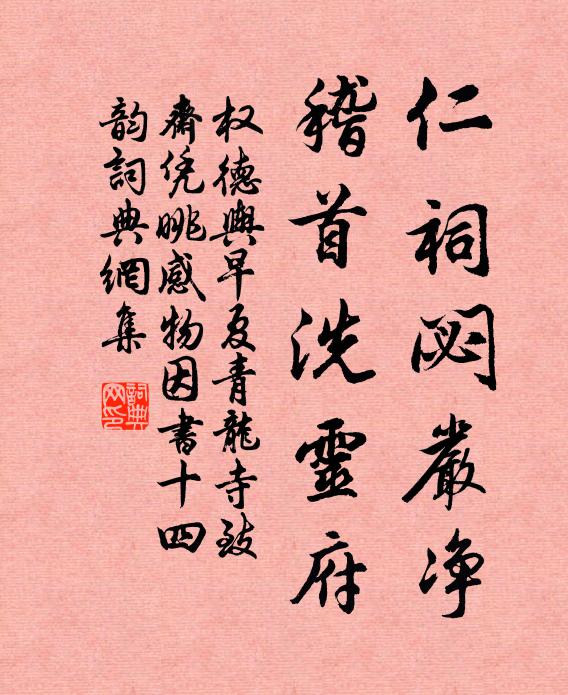 仁祠閟嚴净
稽首洗靈府
权德輿早夏青龍寺致
齋凭眺感物因書十四
韵詞典網集
詞典網印